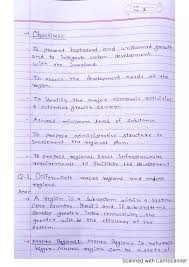 → Objectives:-
- To prevent haphazard and unplanned growth
and to integrate urban development
with the
- To assess the development needs of the
region.
- To identify the major economic activities
& potential growth centers.
- Accord minimum level of substance.
- To propose administrative structure to
implement the regional plan
- To project regional level infrastructure
requirements and facilitate the development
Q-2. Differentiate macro regions and micro
regions.
→ A region is a subsystem within a system
(the country itself) and if subsystems
develop greater inter-connectivity, the
greater will be the efficiency of the
system.
→ Macro Regions:- Macro Region is naturally
bigger. Macro region can be a state of
Scanned with CamScanner